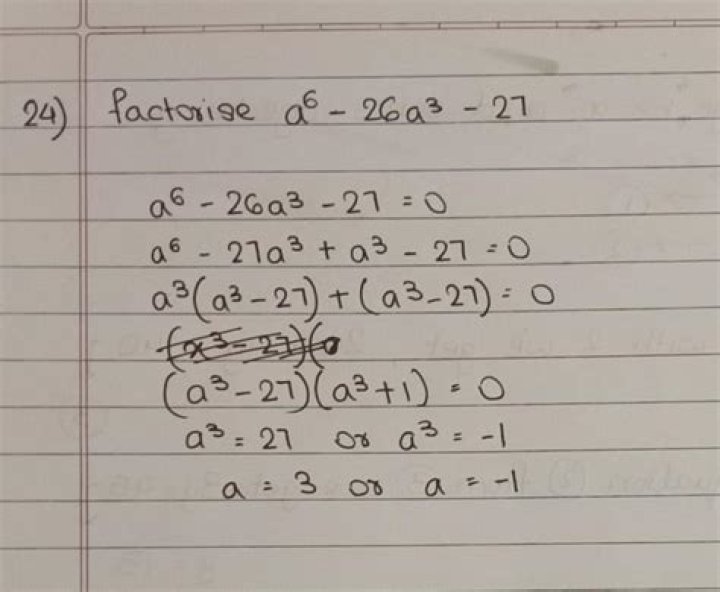 24) factorise a⁶ - 26a³ - 27
a⁶ - 26a³ - 27 = 0
a⁶ - 27a³ + a³ - 27 = 0
a³(a³ - 27) + (a³ - 27) = 0
(x³ - 27)(a
(a³ - 27)(a³ + 1) = 0
a³ = 27 or a³ = -1
a = 3 or a = -1